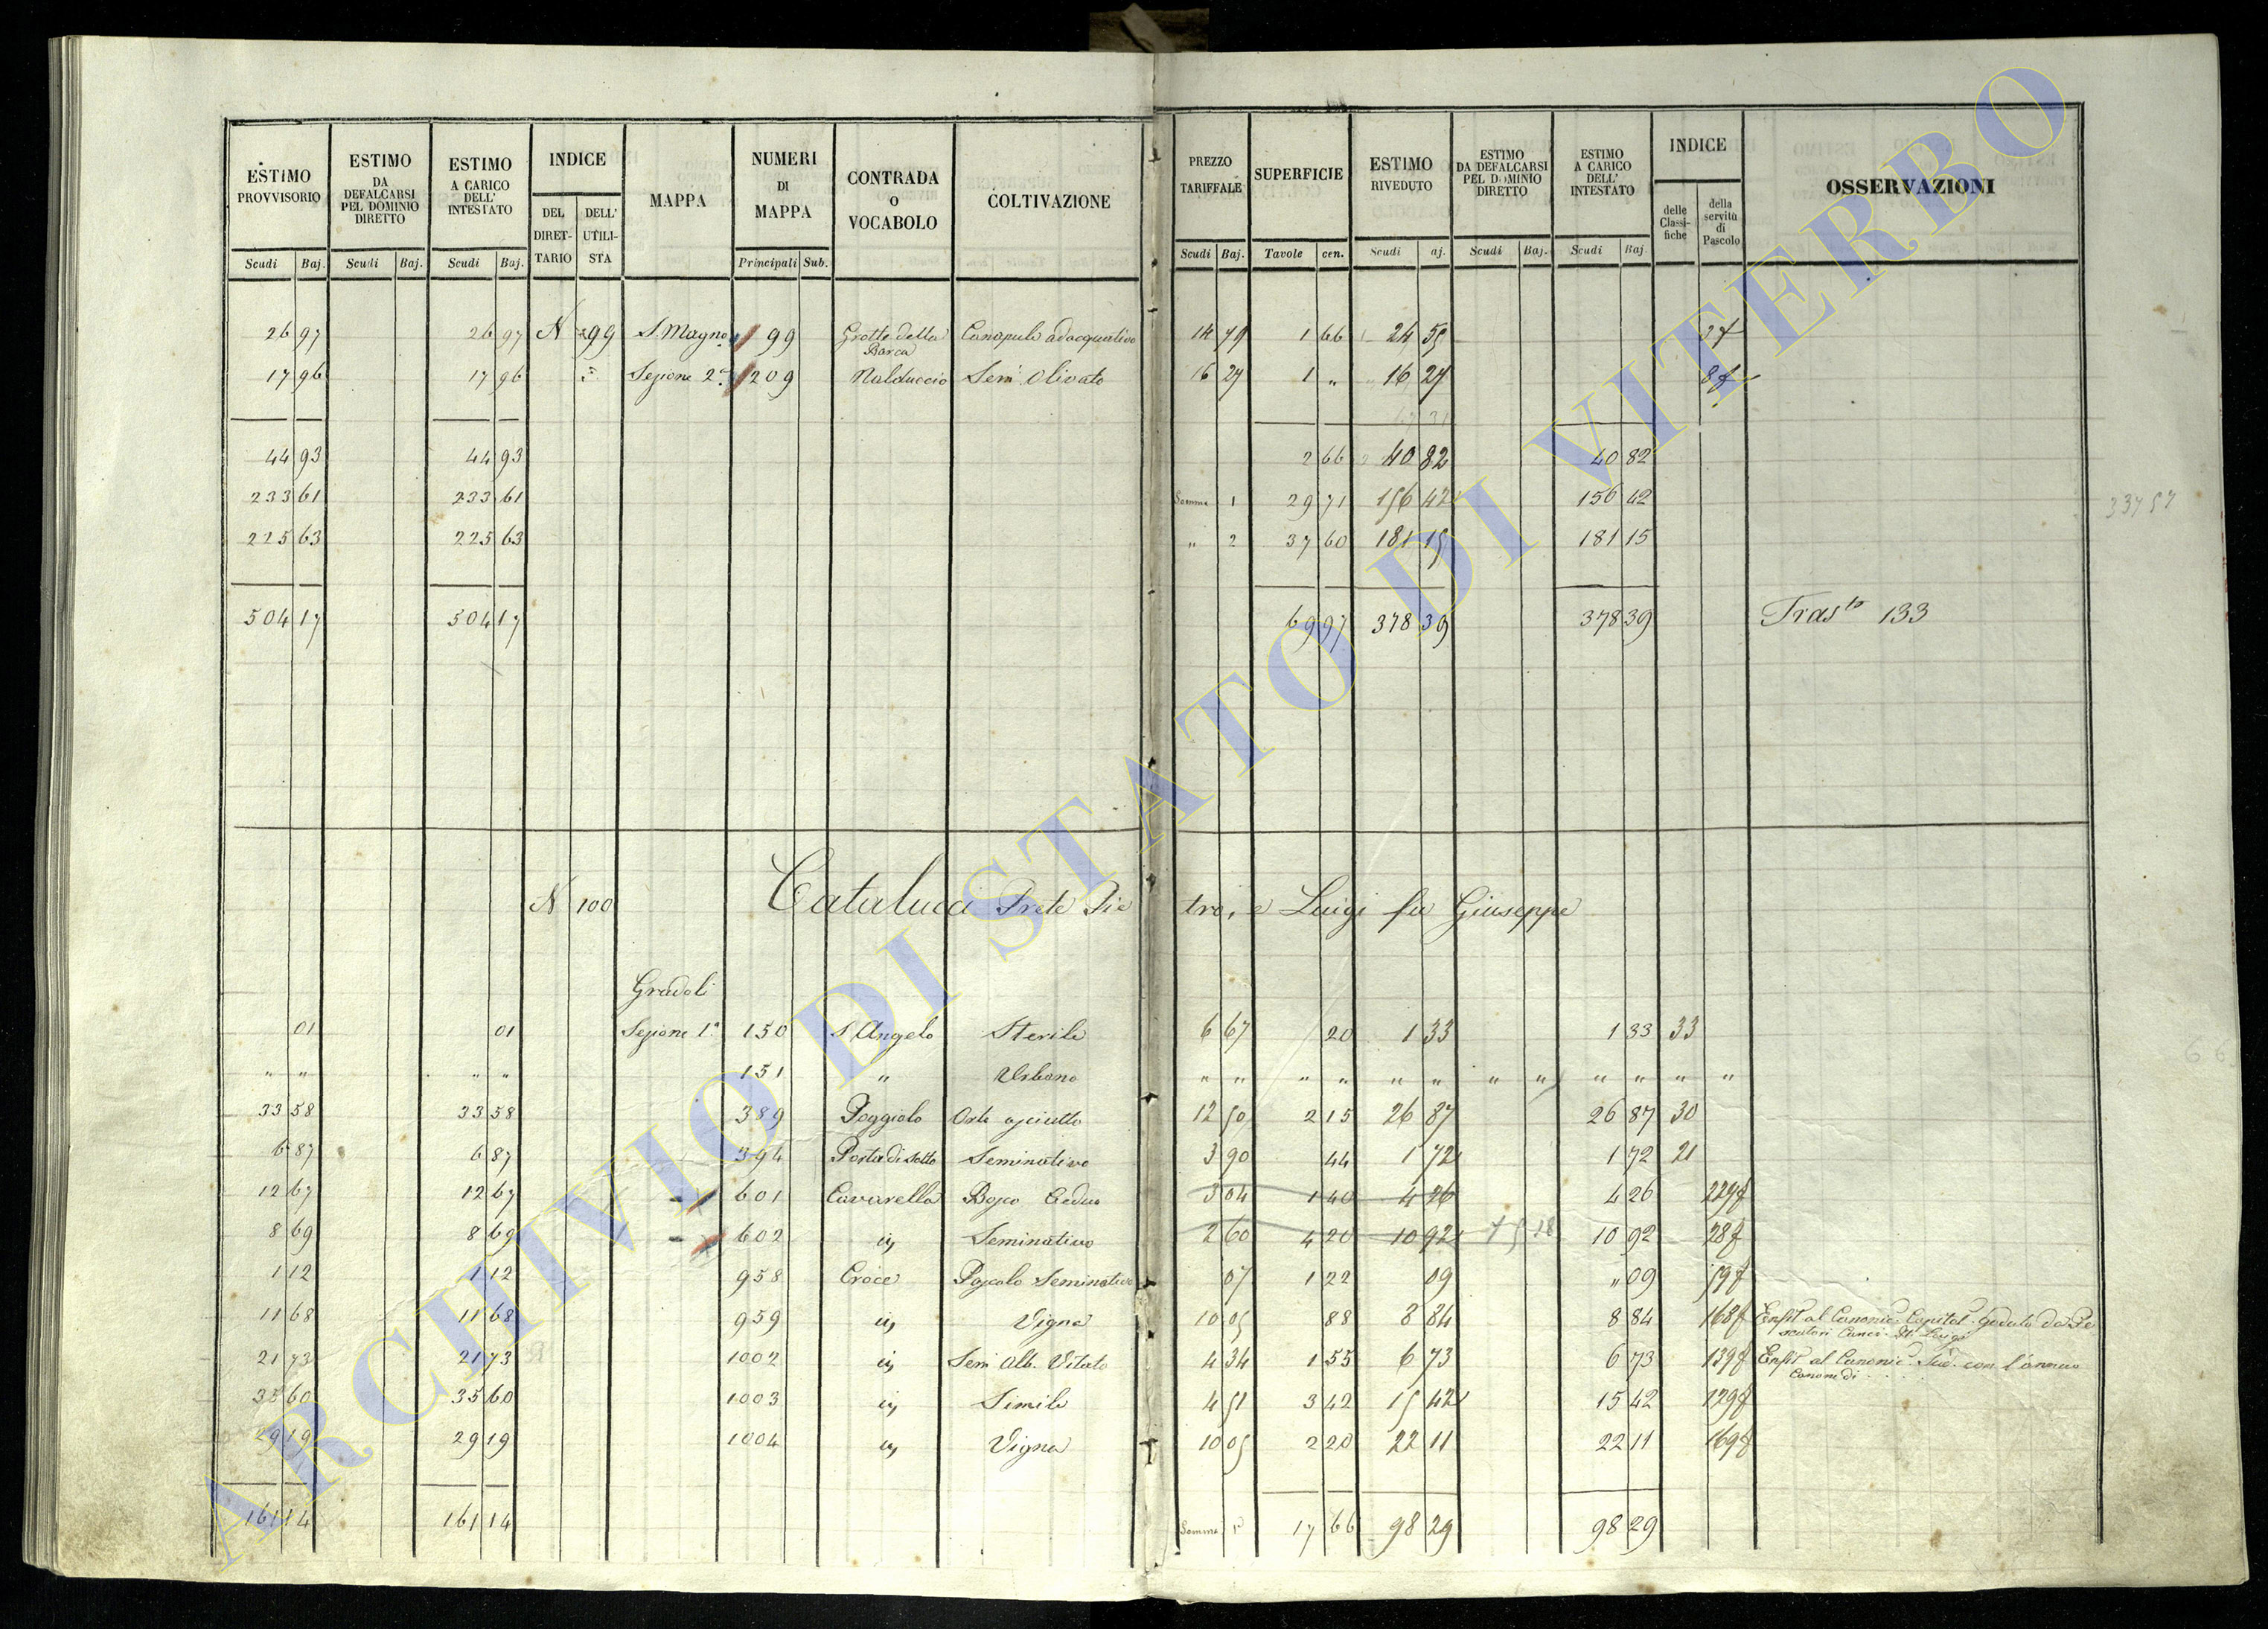 ESTIMO PROVVISORIO | ESTIMO DA DEFALCARSI PEL DOMINIO DIRETTO | ESTIMO A CARICO DELL' INTESTATO | INDICE | MAPPA | NUMERI DI MAPPA | CONTRADA O VOCABOLO | COLTIVAZIONE | PREZZO TARIFFALE | SUPERFICIE | ESTIMO RIVEDUTO | ESTIMO DA DEFALCARSI PEL DOMINIO DIRETTO | ESTIMO A CARICO DELL' INTESTATO | INDICE | OSSERVAZIONI
DEL DIRETTARIO | DELL' UTILISTA | delle Classifiche | della servitù di Pascolo
Scudi | Baj. | Scudi | Baj. | Scudi | Baj. | Principali | Sub. | Scudi | Baj. | Tavole | cen. | Scudi | aj. | Scudi | Baj. | Scudi | Baj.
26 97 | 26 97 | N 99 | S. Magno | 99 | Grotte della Barca | Canapule adacquativo | 14 79 | 1 66 | 24 55
17 96 | 17 96 | Sezione 2a | 209 | Nalduccio | Sem. Olivato | 16 27 | 1 „ | 16 27
44 93 | 44 93 | 2 66 | 40 82 | 40 82
233 61 | 233 61 | Somma 1 | 29 71 | 156 42 | 156 42
225 63 | 225 63 | „ 2 | 37 60 | 181 15 | 181 15
504 17 | 504 17 | 69 97 | 378 39 | 378 39 | Trasto 133
N 100 | Cataluci Prete Pietro, e Luigi fu Giuseppe
Gradoli
01 | 01 | Sezione 1a | 150 | S. Angelo | Sterile | 6 67 | 20 | 1 33 | 1 33 | 33
„ „ | „ „ | 151 | „ | Urbano | „ „ | „ „ | „ „ | „ „ | „ „ | „ | „
33 58 | 33 58 | 389 | Poggiolo | Orto asciutto | 12 50 | 2 15 | 26 87 | 26 87 | 30
6 87 | 6 87 | 394 | Porta di Sotto | Seminativo | 3 90 | 44 | 1 72 | 1 72 | 21
12 67 | 12 67 | 601 | Cavarella | Bosco Ceduo | 3 04 | 1 40 | 4 26 | 4 26 | 229f
8 69 | 8 69 | 602 | ivi | Seminativo | 2 60 | 4 20 | 10 92 | 10 92 | 28f
1 12 | 1 12 | 958 | Croce | Pascolo Seminativo | 07 | 1 22 | 09 | „ 09 | 59f
11 68 | 11 68 | 959 | ivi | Vigna | 10 05 | 88 | 8 84 | 8 84 | 168f | Enfit. al Canonic. Capitol. goduto da Pescatori Canci. Dt. Luigi
21 73 | 21 73 | 1002 | ivi | Sem. Alb. Vitato | 4 34 | 1 55 | 6 73 | 6 73 | 139f | Enfit. al Canonic. Sud. con l'annuo Canone di . . . .
35 60 | 35 60 | 1003 | ivi | Simile | 4 51 | 3 42 | 15 42 | 15 42 | 129f
29 19 | 29 19 | 1004 | ivi | Vigna | 10 05 | 2 20 | 22 11 | 22 11 | 169f
161 14 | 161 14 | Somma | 17 66 | 98 29 | 98 29
ARCHIVIO DI STATO DI VITERBO